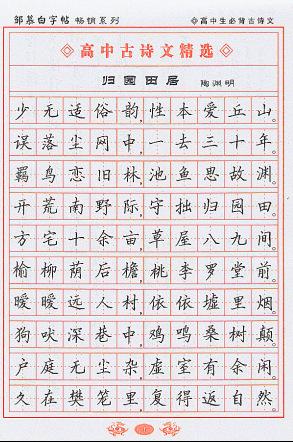 邹慕白字帖 畅销系列 ◎高中生必背古诗文
高中古诗文精选
归园田居 陶渊明
少无适俗韵,性本爱丘山。
误落尘网中,一去三十年。
羁鸟恋旧林,池鱼思故渊。
开荒南野际,守拙归园田。
方宅十余亩,草屋八九间。
榆柳荫后檐,桃李罗堂前。
暧暧远人村,依依墟里烟。
狗吠深巷中,鸡鸣桑树颠。
户庭无尘杂,虚室有余闲。
久在樊笼里,复得返自然。